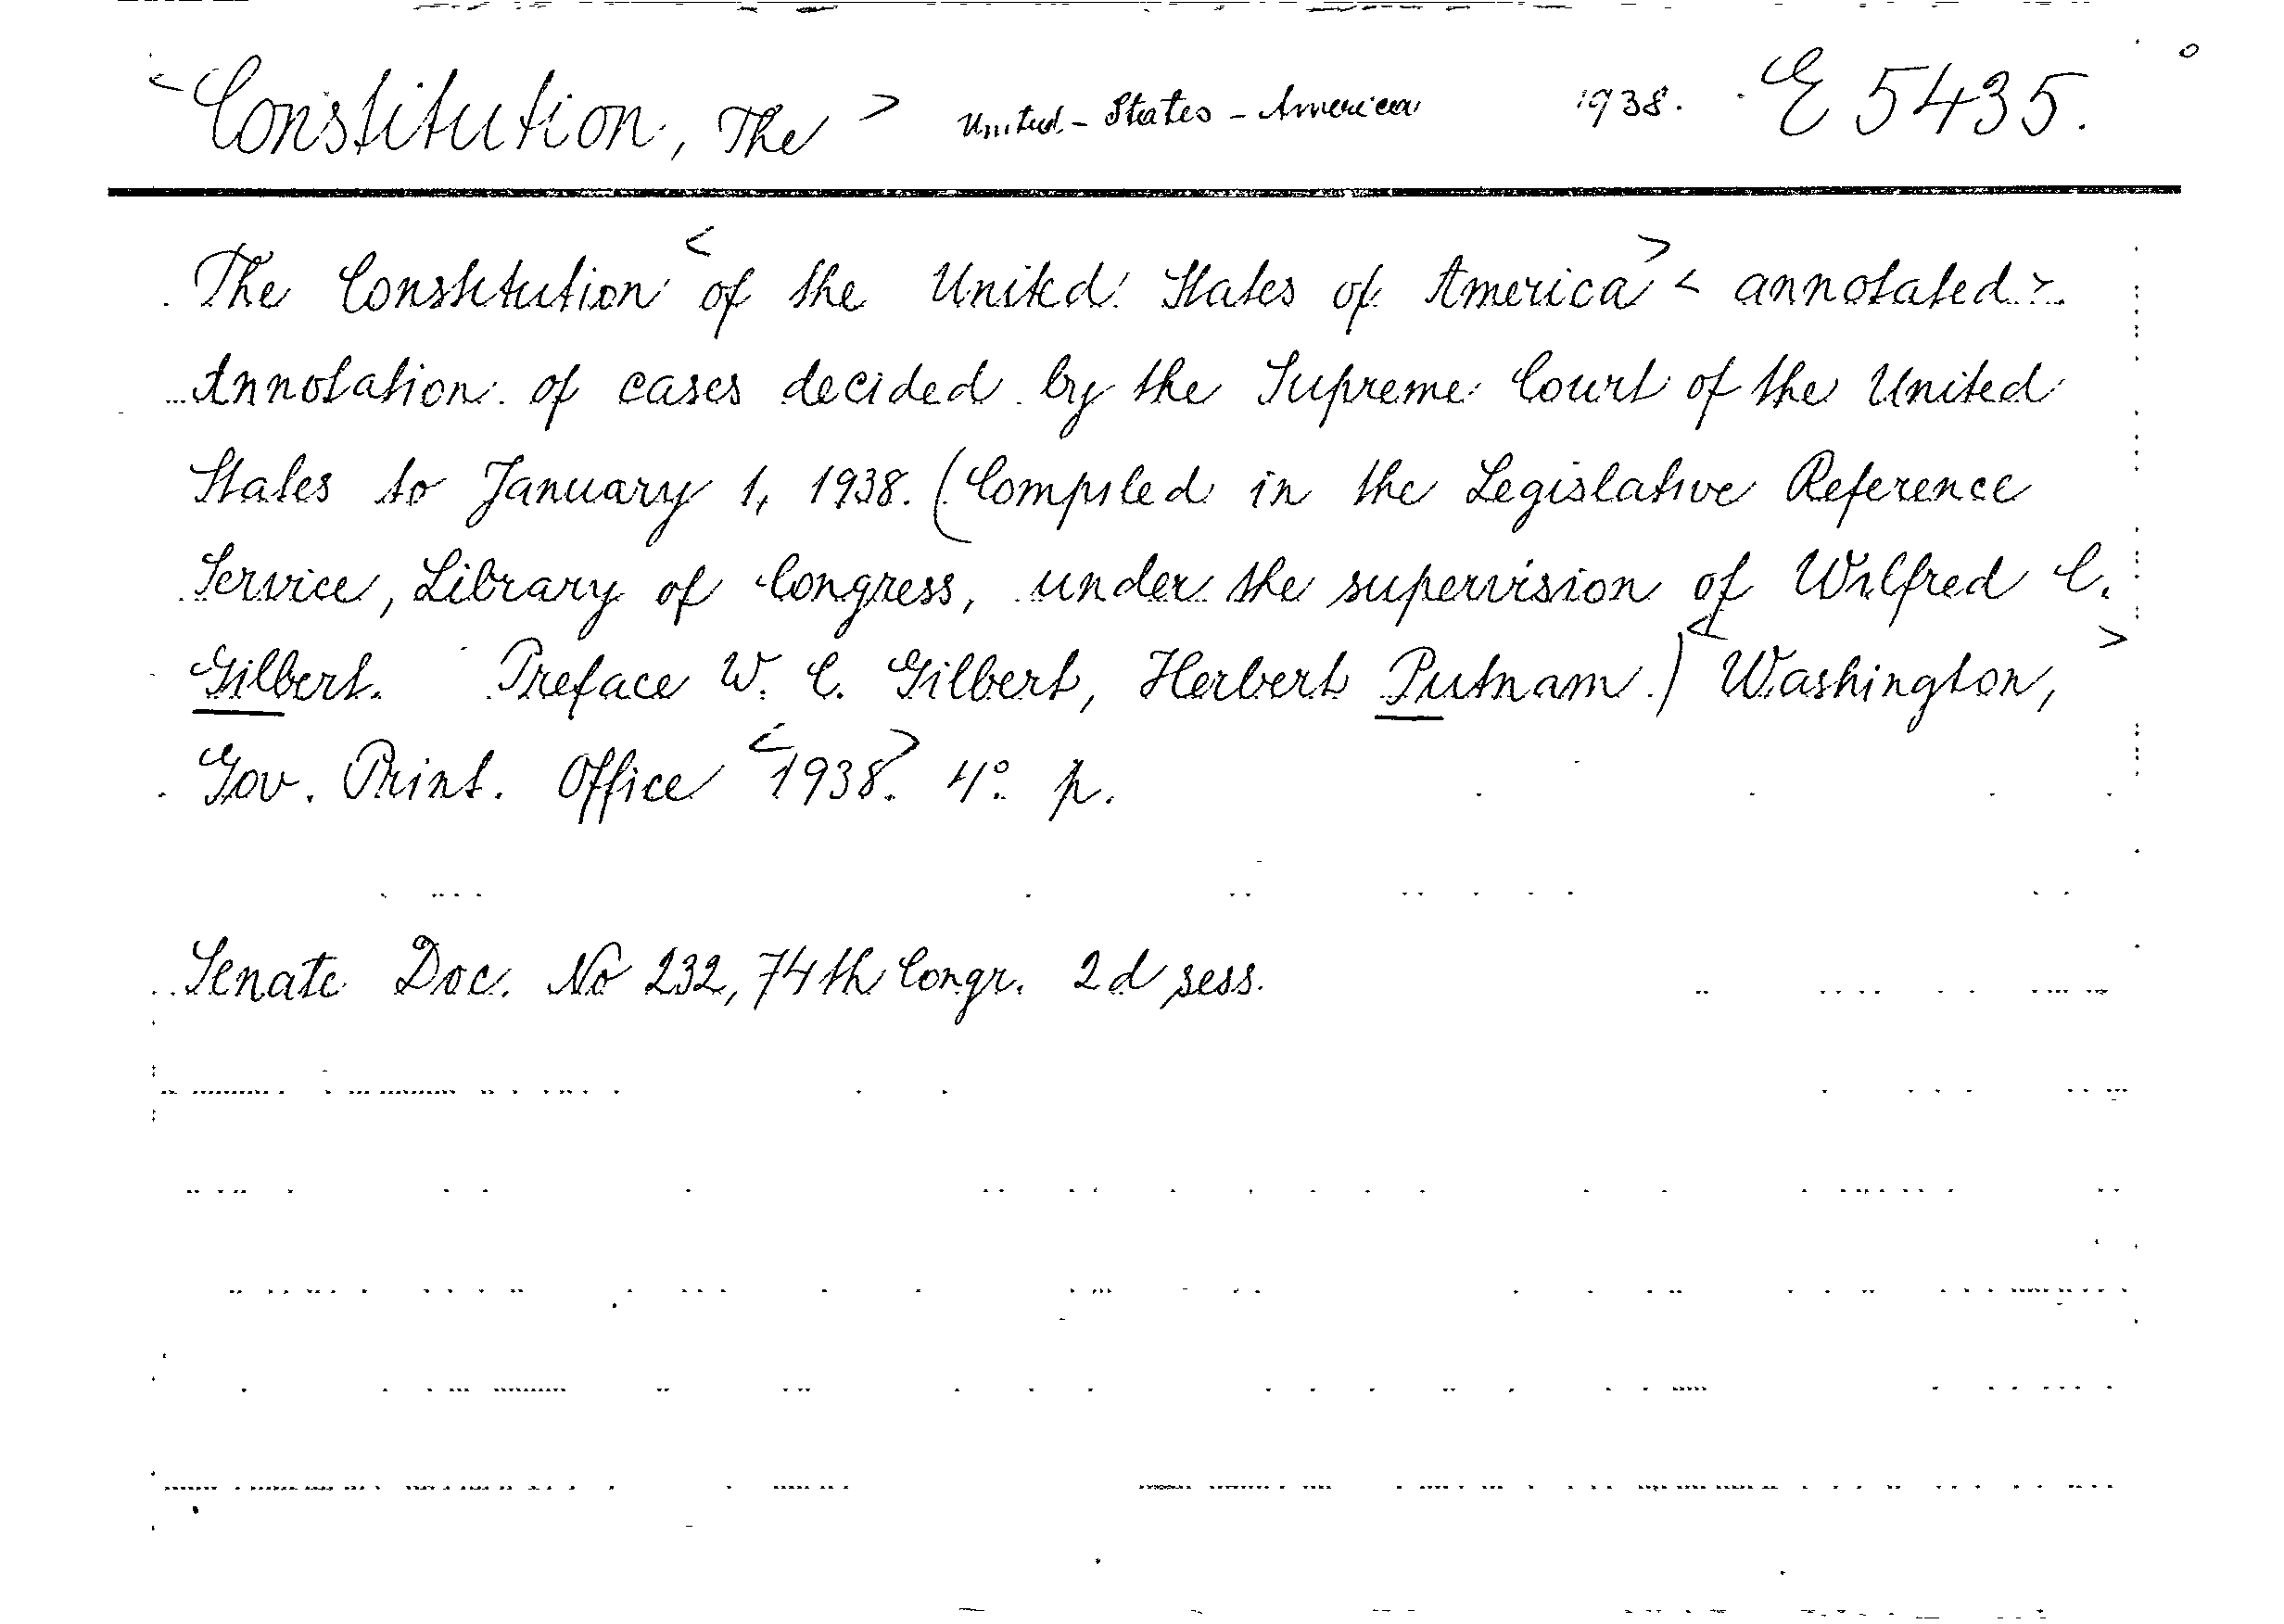 <Constitution, The> United-States-America 1938. E 5435.
The Constitution <of the United States of America> <annotated>.
Annotation of cases decided by the Supreme Court of the United
States to January 1, 1938. (Compiled in the Legislative Reference
Service, Library of Congress, under the supervision of Wilfred C.
Gilbert. Preface W. C. Gilbert, Herbert Putnam.) <Washington,>
Gov. Print. Office <1938>. 4° p.
Senate Doc. No 232, 74th Congr. 2d sess.